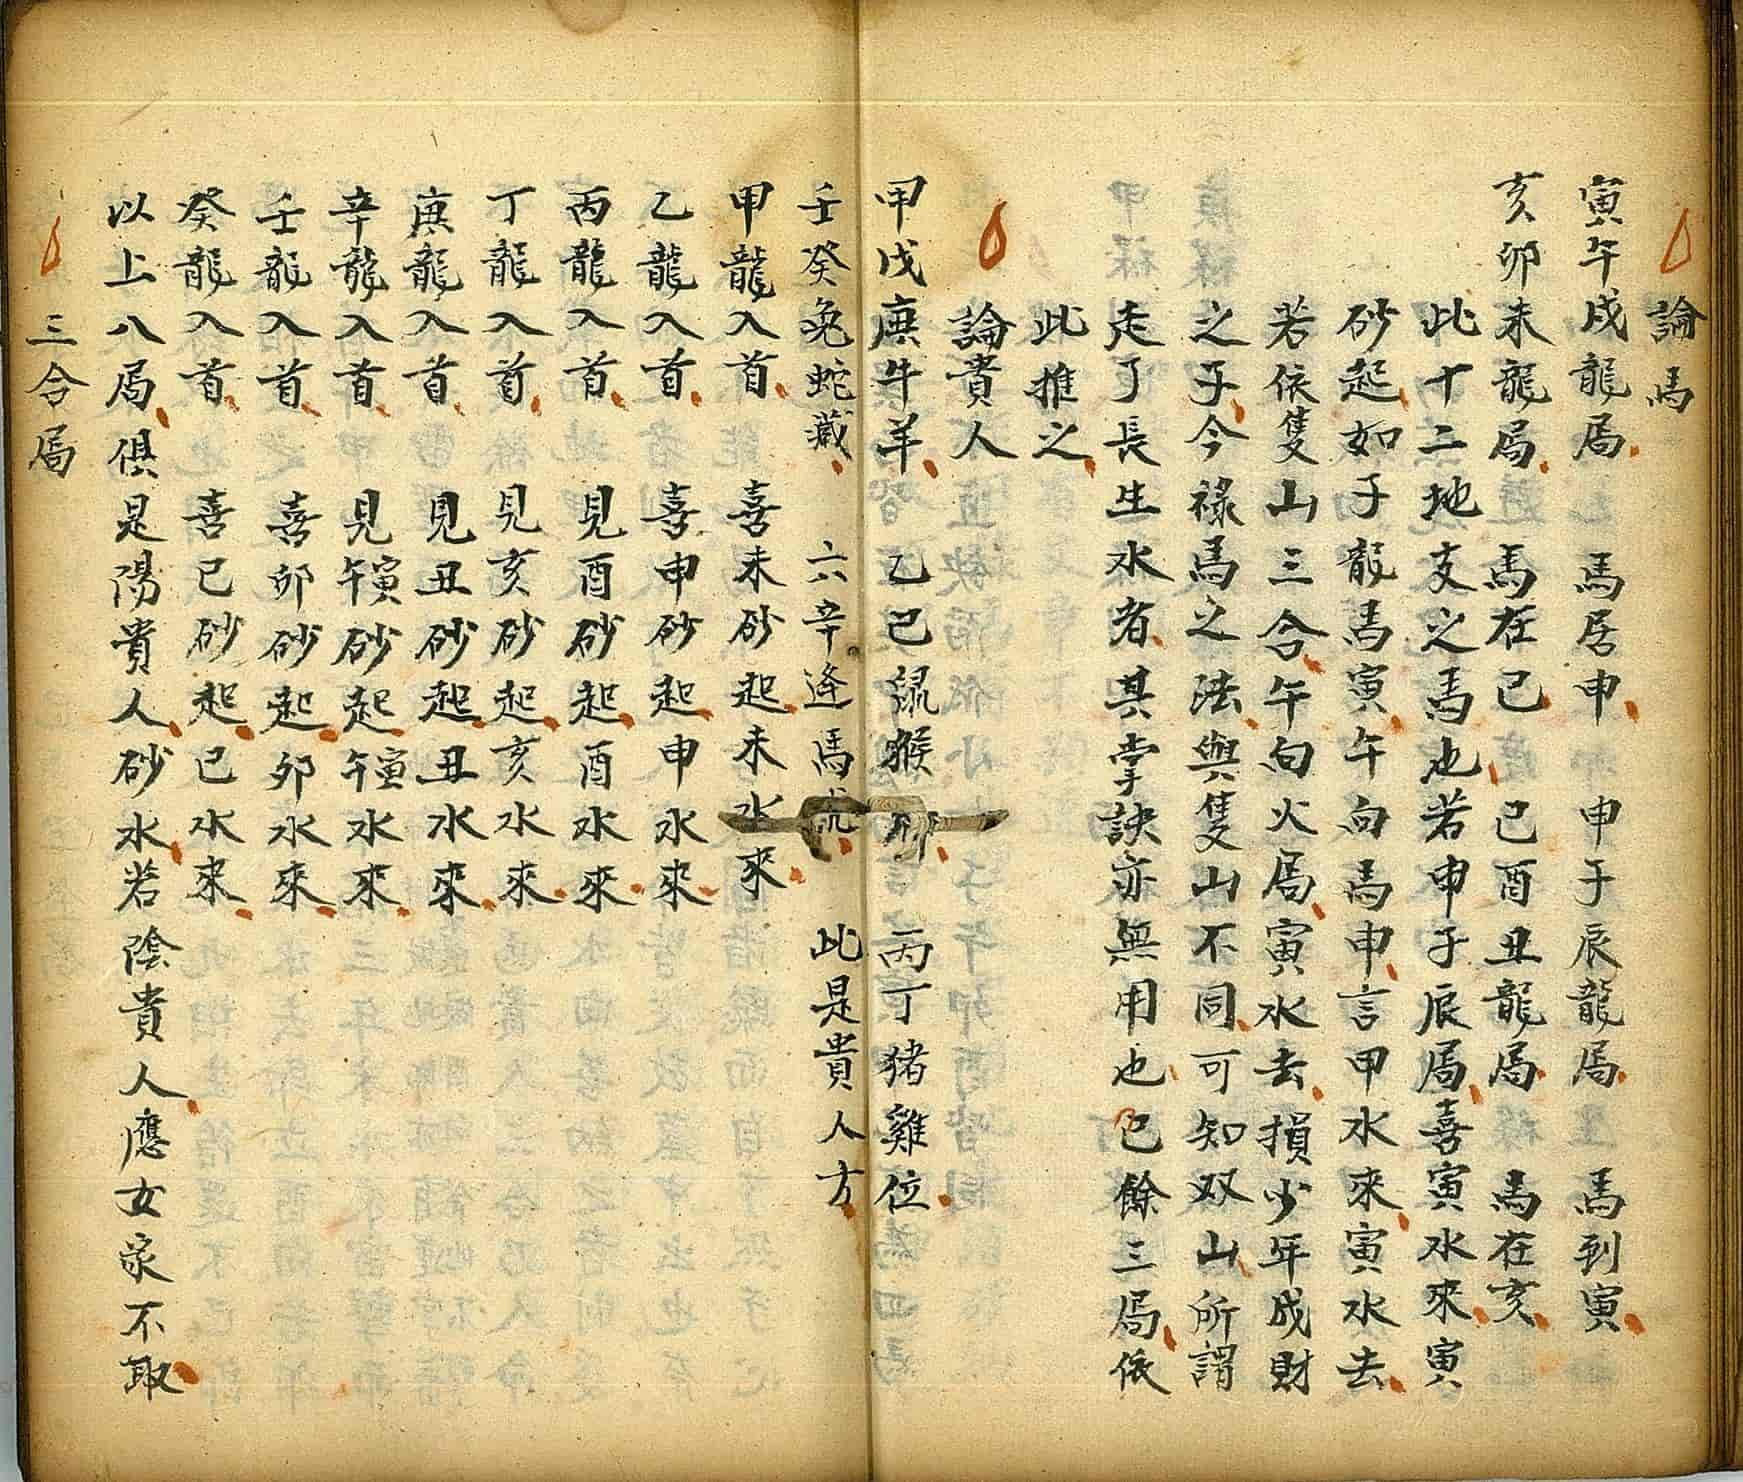 論馬
寅午戌龍局 馬居申 申子辰龍局 馬到寅
亥卯未龍局 馬在巳 巳酉丑龍局 馬在亥
此十二地支之馬也若申子辰局喜寅水來寅
砂起如子龍馬寅午向馬申言甲水來寅水去
若依隻山三合午向火局寅水去損少年成財
之子今祿馬之法與隻山不同可知双山所謂
走了長生水者其掌訣亦無用也巳餘三局依
此推之
論貴人
甲戊庚牛羊 乙己鼠猴 丙丁猪雞位
壬癸兔蛇藏 六辛逢馬虎 此是貴人方
甲龍入首 喜未砂起未水來
乙龍入首 喜申砂起申水來
丙龍入首 見酉砂起酉水來
丁龍入首 見亥砂起亥水來
庚龍入首 見丑砂起丑水來
辛龍入首 見午寅砂起午寅水來
壬龍入首 喜卯砂起卯水來
癸龍入首 喜巳砂起巳水來
以上八局俱是陽貴人砂水若陰貴人應女家不取
三合局